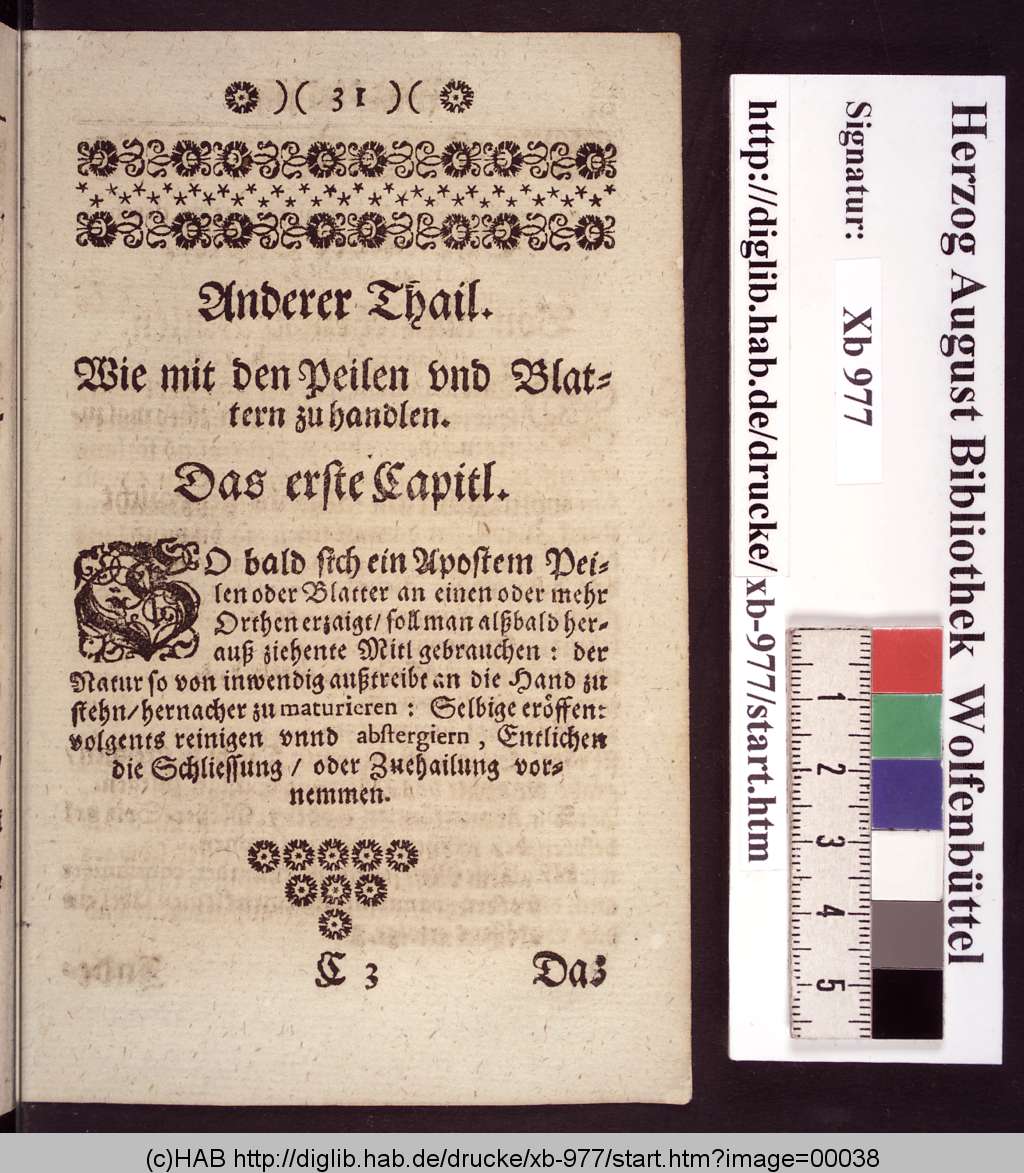 )( 31 )(
Anderer Thail.
Wie mit den Peilen vnd Blat-
tern zu handlen.
Das erste Capitl.
SO bald sich ein Apostem Pei-
len oder Blatter an einen oder mehr
Orthen erzaigt/ soll man alßbald her-
auß ziehente Mitl gebrauchen: der
Natur so von inwendig außtreibt an die Hand zu
stehn/ hernacher zu maturieren: Selbige eröffen:
volgents reinigen vnnd abstergiern, Entlichen
die Schliessung/ oder Zuehailung vor-
nemmen.
C 3 Das
Herzog August Bibliothek Wolfenbüttel
Signatur: Xb 977
http://diglib.hab.de/drucke/xb-977/start.htm
1
2
3
4
5
(c)HAB http://diglib.hab.de/drucke/xb-977/start.htm?image=00038